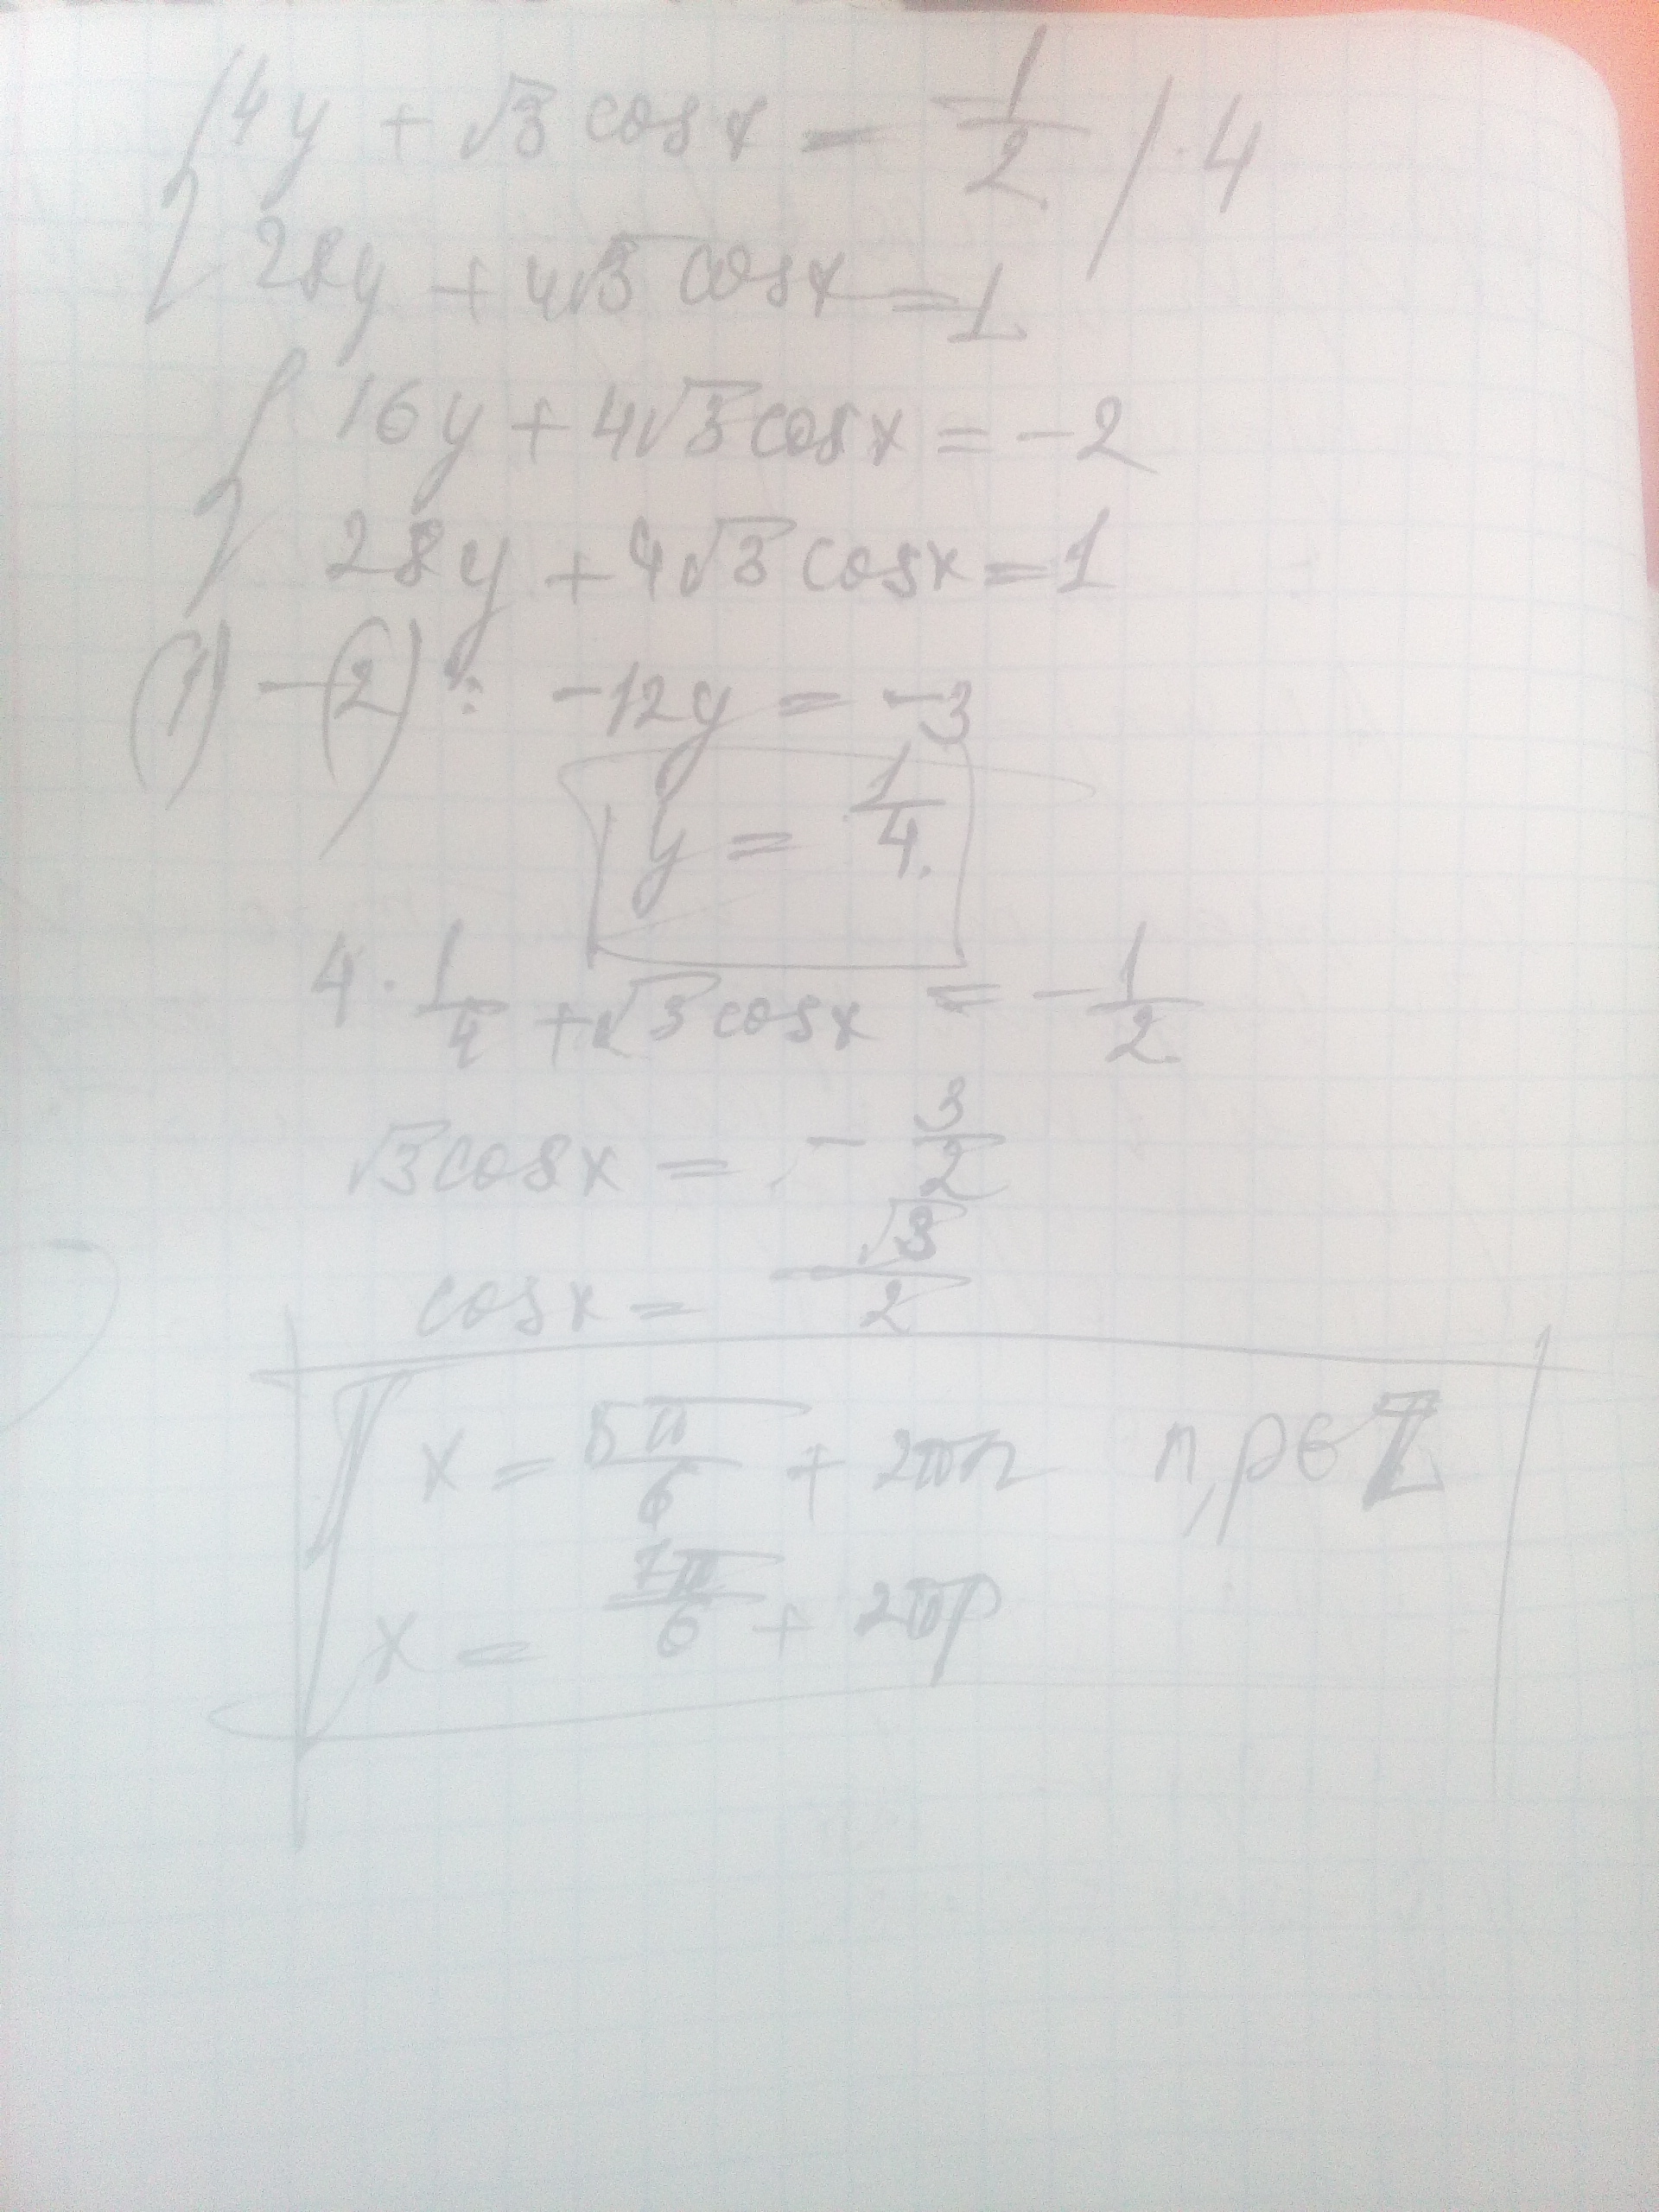 { 4y + √3 cosx = -1/2 / · 4
28y + 4√3 cosx = 1
{ 16y + 4√3 cosx = -2
28y + 4√3 cosx = 1
(1) - (2): -12y = -3
y = 1/4.
4 · 1/4 + √3 cosx = -1/2
√3 cosx = -3/2
cosx = -√3/2
[ x = 5π/6 + 2πn n, p ∈ ℤ
x = 7π/6 + 2πp